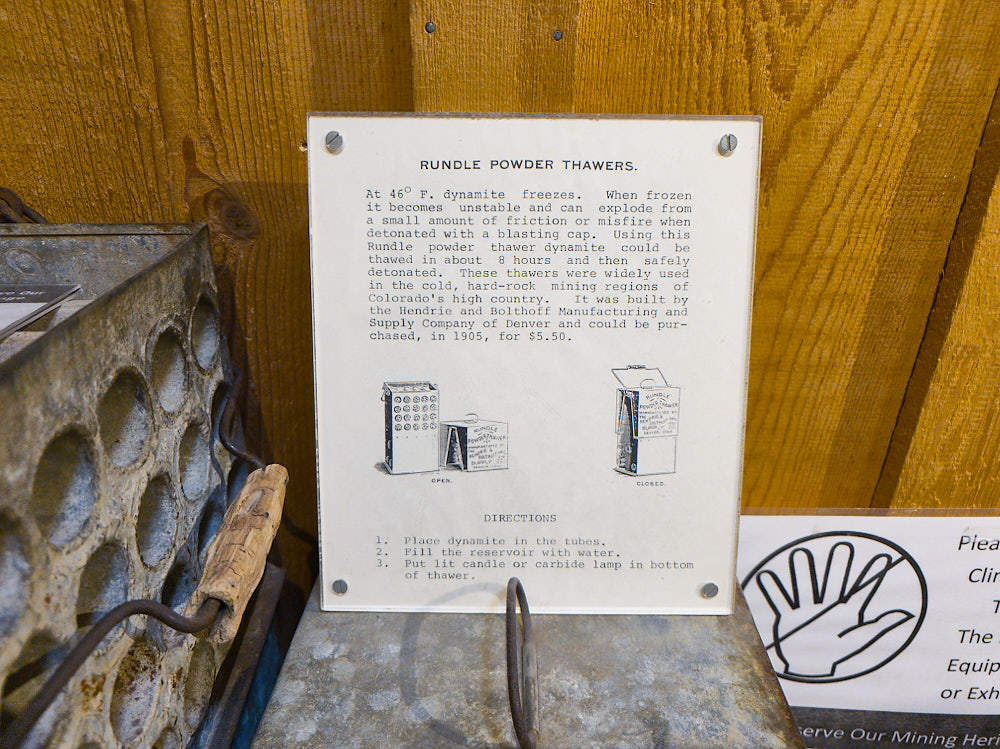 RUNDLE POWDER THAWERS.
At 46° F. dynamite freezes. When frozen
it becomes unstable and can explode from
a small amount of friction or misfire when
detonated with a blasting cap. Using this
Rundle powder thawer dynamite could be
thawed in about 8 hours and then safely
detonated. These thawers were widely used
in the cold, hard-rock mining regions of
Colorado's high country. It was built by
the Hendrie and Bolthoff Manufacturing and
Supply Company of Denver and could be pur-
chased, in 1905, for $5.50.
RUNDLE
POWDER THAWER
MANUFACTURED BY
HENDRIE &
BOLTHOFF
SUPPLY
OPEN.
RUNDLE
POWDER THAWER
MANUFACTURED BY
BOLTHOFF
SUPPLY
DENVER, COLO.
CLOSED.
DIRECTIONS
1. Place dynamite in the tubes.
2. Fill the reservoir with water.
3. Put lit candle or carbide lamp in bottom
of thawer.
The
Equip
or Exh
serve Our Mining Heri